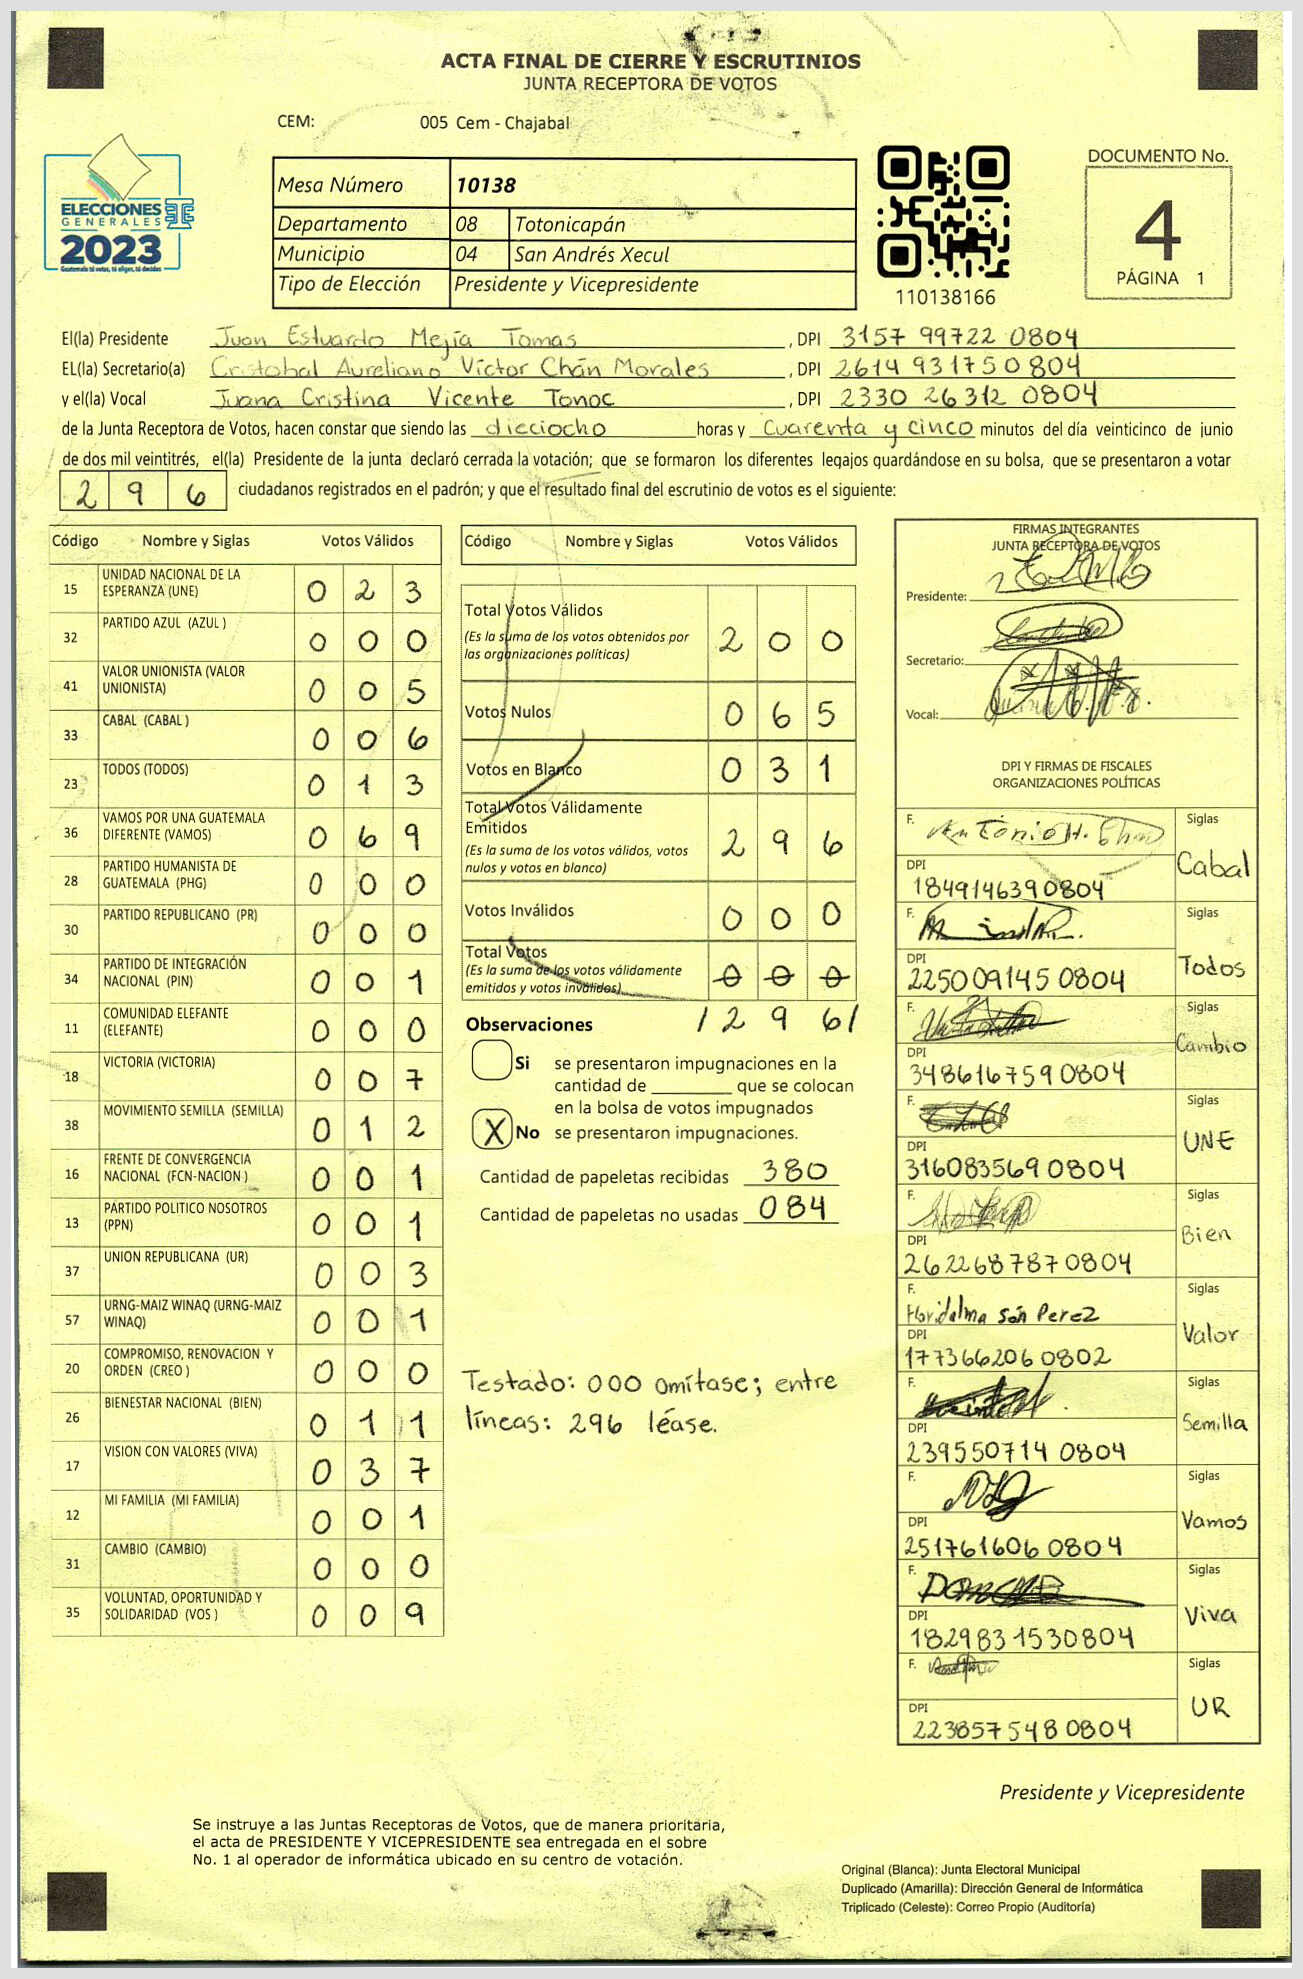 ACTA FINAL DE CIERRE Y ESCRUTINIOS
JUNTA RECEPTORA DE VOTOS
CEM: 005 Cem - Chajabal
ELECCIONES
GENERALES
2023
Guatemala tú votas, tú eliges, tú decides
Mesa Número 10138
Departamento 08 Totonicapán
Municipio 04 San Andrés Xecul
Tipo de Elección Presidente y Vicepresidente
110138166
DOCUMENTO No.
4
PÁGINA 1
El(la) Presidente Juan Estuardo Mejía Tomas , DPI 3157 99722 0804
EL(la) Secretario(a) Cristobal Aureliano Víctor Chán Morales , DPI 2614 931750804
y el(la) Vocal Juana Cristina Vicente Tonoc , DPI 2330 26312 0804
de la Junta Receptora de Votos, hacen constar que siendo las dieciocho horas y Cuarenta y cinco minutos del día veinticinco de junio
de dos mil veintitrés, el(la) Presidente de la junta declaró cerrada la votación; que se formaron los diferentes legajos guardándose en su bolsa, que se presentaron a votar
2 9 6 ciudadanos registrados en el padrón; y que el resultado final del escrutinio de votos es el siguiente:
Código Nombre y Siglas Votos Válidos
15 UNIDAD NACIONAL DE LA ESPERANZA (UNE) 0 2 3
32 PARTIDO AZUL (AZUL ) 0 0 0
41 VALOR UNIONISTA (VALOR UNIONISTA) 0 0 5
33 CABAL (CABAL ) 0 0 6
23 TODOS (TODOS) 0 1 3
36 VAMOS POR UNA GUATEMALA DIFERENTE (VAMOS) 0 6 9
28 PARTIDO HUMANISTA DE GUATEMALA (PHG) 0 0 0
30 PARTIDO REPUBLICANO (PR) 0 0 0
34 PARTIDO DE INTEGRACIÓN NACIONAL (PIN) 0 0 1
11 COMUNIDAD ELEFANTE (ELEFANTE) 0 0 0
18 VICTORIA (VICTORIA) 0 0 7
38 MOVIMIENTO SEMILLA (SEMILLA) 0 1 2
16 FRENTE DE CONVERGENCIA NACIONAL (FCN-NACION ) 0 0 1
13 PARTIDO POLITICO NOSOTROS (PPN) 0 0 1
37 UNION REPUBLICANA (UR) 0 0 3
57 URNG-MAIZ WINAQ (URNG-MAIZ WINAQ) 0 0 1
20 COMPROMISO, RENOVACION Y ORDEN (CREO ) 0 0 0
26 BIENESTAR NACIONAL (BIEN) 0 1 1
17 VISION CON VALORES (VIVA) 0 3 7
12 MI FAMILIA (MI FAMILIA) 0 0 1
31 CAMBIO (CAMBIO) 0 0 0
35 VOLUNTAD, OPORTUNIDAD Y SOLIDARIDAD (VOS ) 0 0 9
Código Nombre y Siglas Votos Válidos
Total Votos Válidos 2 0 0
(Es la suma de los votos obtenidos por
las organizaciones politicas)
Votos Nulos 0 6 5
Votos en Blanco 0 3 1
Total Votos Válidamente
Emitidos 2 9 6
(Es la suma de los votos válidos, votos
nulos y votos en blanco)
Votos Inválidos 0 0 0
Total Votos 0 0 0
(Es la suma de los votos válidamente
emitidos y votos inválidos)
Observaciones / 2 9 6 /
Si se presentaron impugnaciones en la
cantidad de ________ que se colocan
en la bolsa de votos impugnados
X No se presentaron impugnaciones.
Cantidad de papeletas recibidas 380
Cantidad de papeletas no usadas 084
Testado: 000 omítase; entre
líneas: 296 léase.
FIRMAS INTEGRANTES
JUNTA RECEPTORA DE VOTOS
Presidente:
Secretario:
Vocal:
DPI Y FIRMAS DE FISCALES
ORGANIZACIONES POLÍTICAS
F. Antonio H. Siglas
DPI 1849146390804 Cabal
F. Siglas
DPI 225009145 0804 Todos
F. Siglas
DPI 348616759 0804 Cambio
F. Siglas
DPI 316083569 0804 UNE
F. Siglas
DPI 262268787 0804 Bien
F. Floridalma Són Perez Siglas
DPI 177366206 0802 Valor
F. Siglas
DPI 239550714 0804 Semilla
F. Siglas
DPI 251761606 0804 Vamos
F. Siglas
DPI 1829831530804 Viva
F. Siglas
DPI 223857548 0804 UR
Presidente y Vicepresidente
Se instruye a las Juntas Receptoras de Votos, que de manera prioritaria,
el acta de PRESIDENTE Y VICEPRESIDENTE sea entregada en el sobre
No. 1 al operador de informática ubicado en su centro de votación.
Original (Blanca): Junta Electoral Municipal
Duplicado (Amarilla): Dirección General de Informática
Triplicado (Celeste): Correo Propio (Auditoría)